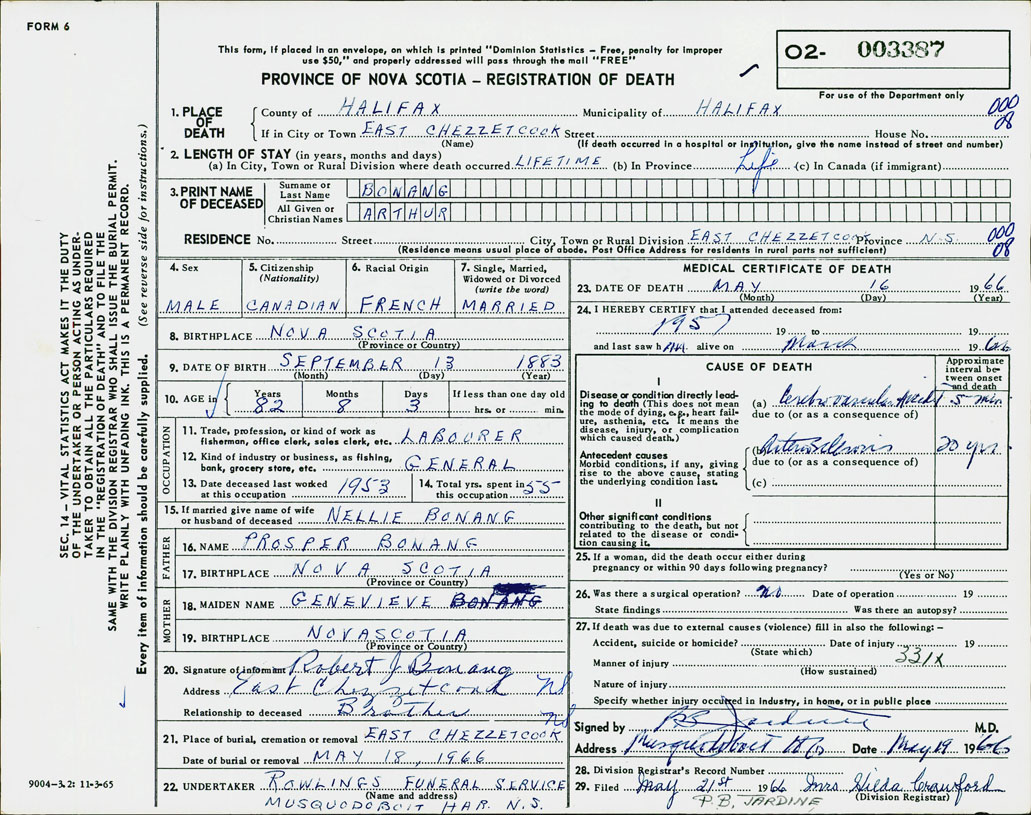 FORM 6
This form, if placed in an envelope, on which is printed "Dominion Statistics – Free, penalty for improper
use $50," and properly addressed will pass through the mail "FREE"
PROVINCE OF NOVA SCOTIA – REGISTRATION OF DEATH
O2- 003387
For use of the Department only
1. PLACE OF DEATH County of HALIFAX Municipality of HALIFAX 000
If in City or Town EAST CHEZZETCOOK Street House No. 08
(Name) (If death occurred in a hospital or institution, give the name instead of street and number)
2. LENGTH OF STAY (in years, months and days)
(a) In City, Town or Rural Division where death occurred LIFETIME (b) In Province Life (c) In Canada (if immigrant)
3. PRINT NAME OF DECEASED
Surname or Last Name BONANG
All Given or Christian Names ARTHUR
RESIDENCE No. Street City, Town or Rural Division EAST CHEZZETCOOK Province N.S. 000
(Residence means usual place of abode. Post Office Address for residents in rural parts not sufficient) 08
4. Sex 5. Citizenship (Nationality) 6. Racial Origin 7. Single, Married, Widowed or Divorced (write the word)
MALE CANADIAN FRENCH MARRIED
8. BIRTHPLACE NOVA SCOTIA
(Province or Country)
9. DATE OF BIRTH SEPTEMBER 13 1883
(Month) (Day) (Year)
10. AGE in Years Months Days If less than one day old
82 8 3 hrs. or min.
OCCUPATION
11. Trade, profession, or kind of work as
fisherman, office clerk, sales clerk, etc. LABOURER
12. Kind of industry or business, as fishing,
bank, grocery store, etc. GENERAL
13. Date deceased last worked at this occupation 1953 14. Total yrs. spent in this occupation 55
15. If married give name of wife
or husband of deceased NELLIE BONANG
FATHER
16. NAME PROSPER BONANG
17. BIRTHPLACE NOVA SCOTIA
(Province or Country)
MOTHER
18. MAIDEN NAME GENEVIEVE BONANG
19. BIRTHPLACE NOVA SCOTIA
(Province or Country)
20. Signature of informant Robert J Bonang
Address East Chezzetcook NS
Relationship to deceased Brother NS
21. Place of burial, cremation or removal EAST CHEZZETCOOK
Date of burial or removal MAY 18, 1966
22. UNDERTAKER ROWLINGS FUNERAL SERVICE
(Name and address)
MUSQUODOBOIT HAR. N.S.
MEDICAL CERTIFICATE OF DEATH
23. DATE OF DEATH MAY 16 1966
(Month) (Day) (Year)
24. I HEREBY CERTIFY that I attended deceased from:
1957 19 to 19
and last saw him alive on March 1966
CAUSE OF DEATH
Approximate interval between onset and death
I
Disease or condition directly leading to death (This does not mean
the mode of dying, e.g., heart failure, asthenia, etc. It means the
disease, injury, or complication
which caused death.)
(a) Cerebrovascular Accident 5 min
due to (or as a consequence of)
Antecedent causes
Morbid conditions, if any, giving
rise to the above cause, stating
the underlying condition last.
(b) Arteriosclerosis 20 yrs
due to (or as a consequence of)
(c)
II
Other significant conditions
contributing to the death, but not
related to the disease or condition causing it.
25. If a woman, did the death occur either during
pregnancy or within 90 days following pregnancy?
(Yes or No)
26. Was there a surgical operation? No Date of operation 19
State findings Was there an autopsy?
27. If death was due to external causes (violence) fill in also the following: –
Accident, suicide or homicide? Date of injury 19
(State which) 331X
Manner of injury
(How sustained)
Nature of injury
Specify whether injury occurred in industry, in home, or in public place
Signed by P.B. Jardine M.D.
Address Musquodoboit Hbr Date May 19 1966
28. Division Registrar's Record Number
29. Filed May 21st 1966 Mrs Hilda Crawford
P.B. JARDINE (Division Registrar)
SEC. 14 – VITAL STATISTICS ACT MAKES IT THE DUTY
OF THE UNDERTAKER OR PERSON ACTING AS UNDER-
TAKER TO OBTAIN ALL THE PARTICULARS REQUIRED
IN THE "REGISTRATION OF DEATH" AND TO FILE THE
SAME WITH THE DIVISION REGISTRAR WHO SHALL ISSUE THE BURIAL PERMIT.
WRITE PLAINLY WITH UNFADING INK. THIS IS A PERMANENT RECORD.
Every item of information should be carefully supplied. (See reverse side for instructions.)
9004-3.2: 11-3-65